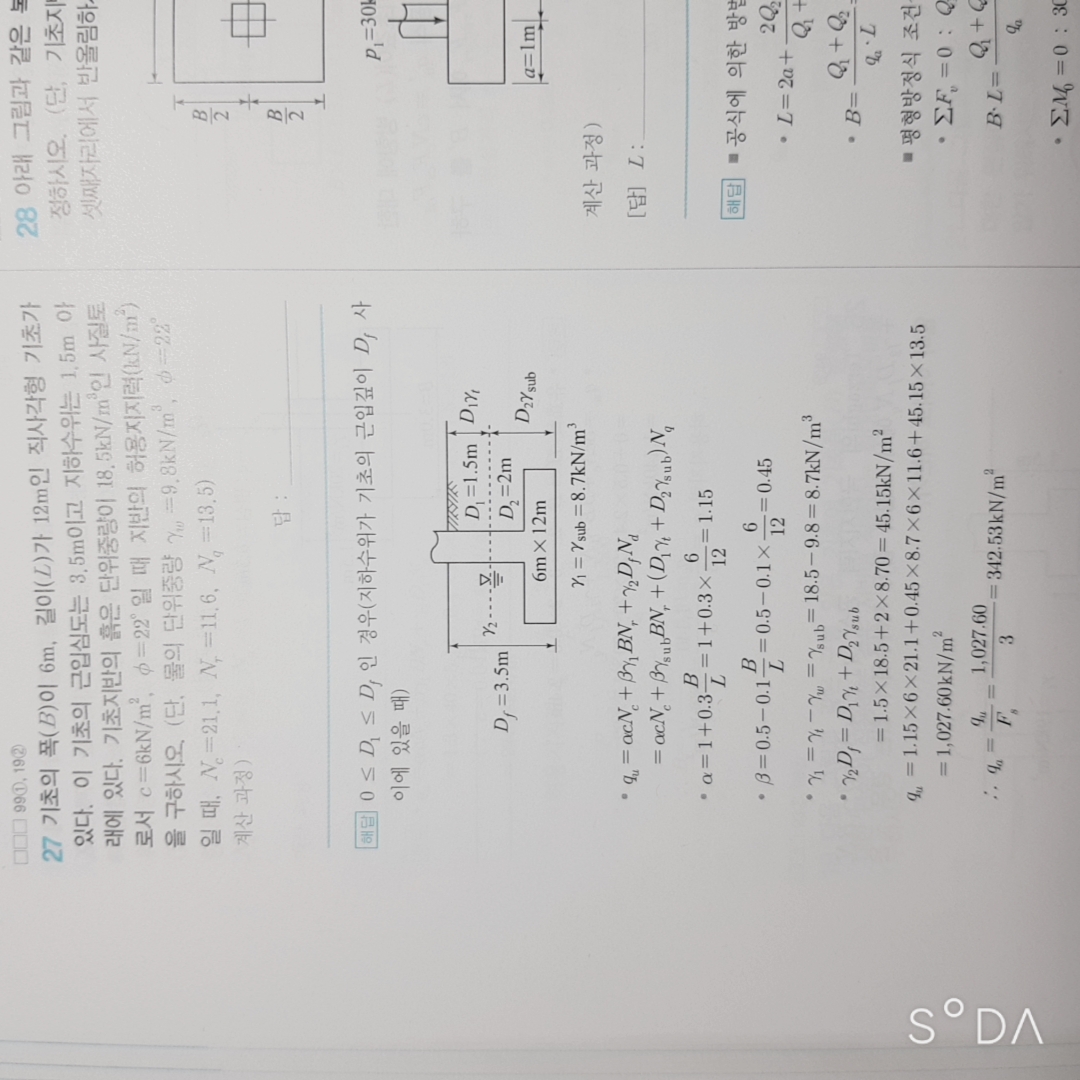 □□□ 99①, 19②
27 기초의 폭(B)이 6m, 길이(L)가 12m인 직사각형 기초가
있다. 이 기초의 근입심도는 3.5m이고 지하수위는 1.5m 아
래에 있다. 기초지반의 흙은 단위중량이 18.5kN/m³인 사질토
로서 c=6kN/m², φ=22°일 때 지반의 허용지지력(kN/m²)
을 구하시오. (단, 물의 단위중량 γw=9.8kN/m³, φ=22°
일 때, Nc=21.1, Nr=11.6, Nq=13.5)
계산 과정)
답 :
해답 0 ≤ D₁ ≤ Df 인 경우(지하수위가 기초의 근입깊이 Df 사
이에 있을 때)
Df=3.5m
γ₂
D₁=1.5m
D₁γt
D₂=2m
D₂γsub
6m×12m
γ₁=γsub=8.7kN/m³
• qu = αcNc + βγ₁BNr + γ₂DfNd
= αcNc + βγsubBNr + (D₁γt + D₂γsub)Nq
• α = 1+0.3 B/L = 1+0.3× 6/12 = 1.15
• β = 0.5-0.1 B/L = 0.5-0.1× 6/12 = 0.45
• γ₁ = γt - γw = γsub = 18.5-9.8 = 8.7kN/m³
• γ₂Df = D₁γt + D₂γsub
= 1.5×18.5+2×8.70 = 45.15kN/m²
qu = 1.15×6×21.1+0.45×8.7×6×11.6+45.15×13.5
= 1,027.60kN/m²
∴ qa = qu/Fs = 1,027.60/3 = 342.53kN/m²
28 아래 그림과 같은 복
정하시오. (단, 기초지
셋째자리에서 반올림하
B/2
B/2
P₁=30k
a=1m
계산 과정)
[답] L :
해답 ■ 공식에 의한 방법
• L = 2a + 2Q₂/Q₁+
• B = Q₁+Q₂/qa·L =
■ 평형방정식 조건
• ΣFv = 0 : Q
B·L = Q₁+Q/qa
• ΣM₀ = 0 : 30
SODA